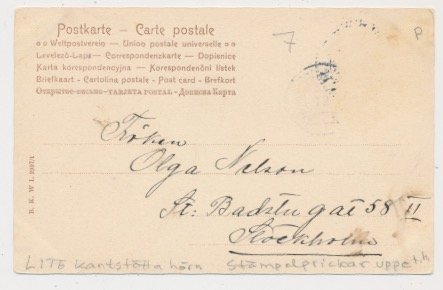 Postkarte — Carte postale
Weltpostverein — Union postale universelle
Levelező-Lap — Correspondenzkarte — Dopisnice
Karta korespondencyjna — Korespondenčni listek
Briefkaart - Cartolina postale - Post card - Brefkort
Открытое письмо - TARJETA POSTAL - Дописна Карта
7
P
Fröken
Olga Nelson
St: Badstugat 58 II
Stockholm
B. K. W. I.
LITE kantstötta hörn
Stämpelprickar uppe t.h